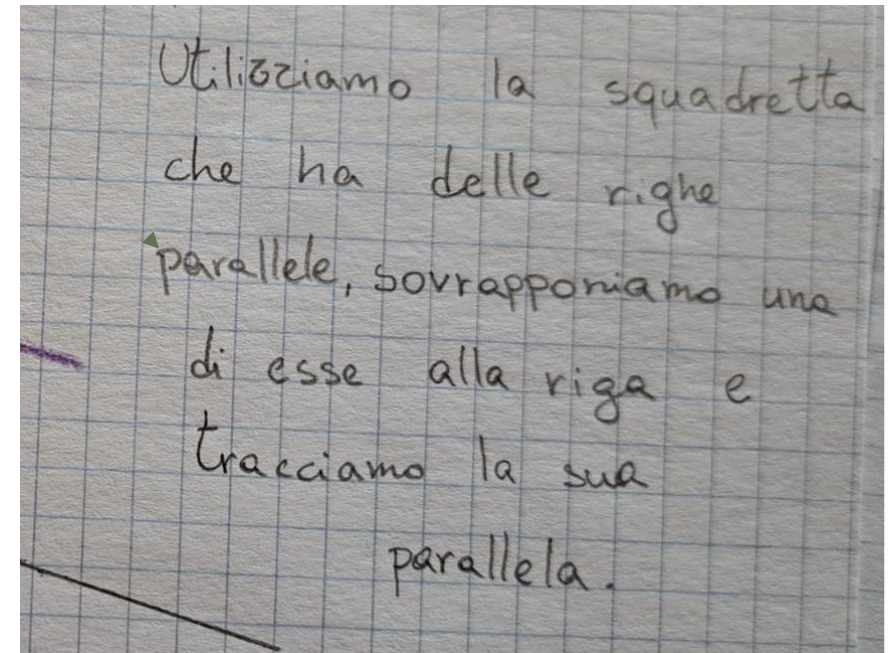 Utilizziamo la squadretta
che ha delle righe
parallele, sovrapponiamo una
di esse alla riga e
tracciamo la sua
parallela.